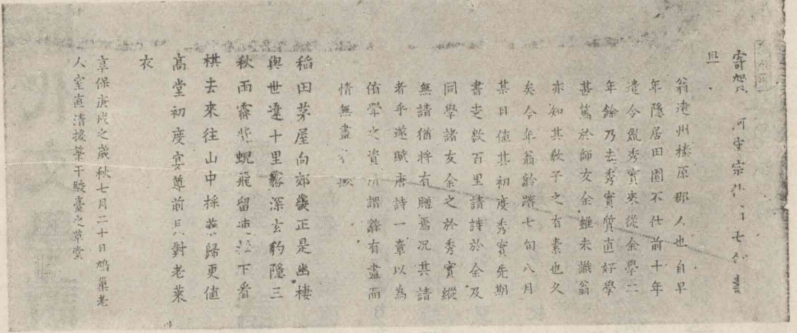 寄賀 河宇宗 七
旦
翁遠州榛原郡人也自早
年隠居田園不仕前十年
遣令嗣秀實東從余學二
年餘乃去秀實質直好學
甚篤於師友余雖未識翁
亦知其教子之有素也久
矣今年翁齡躋七旬八月
某日値其初度秀實先期
書走数百里請詩於余及
同學諸友余之於秀實縱
無請猶將有贈焉況其請
者乎遂賦唐詩一章以為
侑觴之資所謂辭有盡而
情無盡
稲田茅屋向郊 正是幽棲
與世違十里霧深玄豹隱三
秋雨霽 蜺飛留連 下看
棋去來往山中採藥歸更值
高堂初度宴尊前具對老莱
衣
享保庚戌之歳秋七月二十日鳩巣老
人室直清援筆于駿臺之草堂